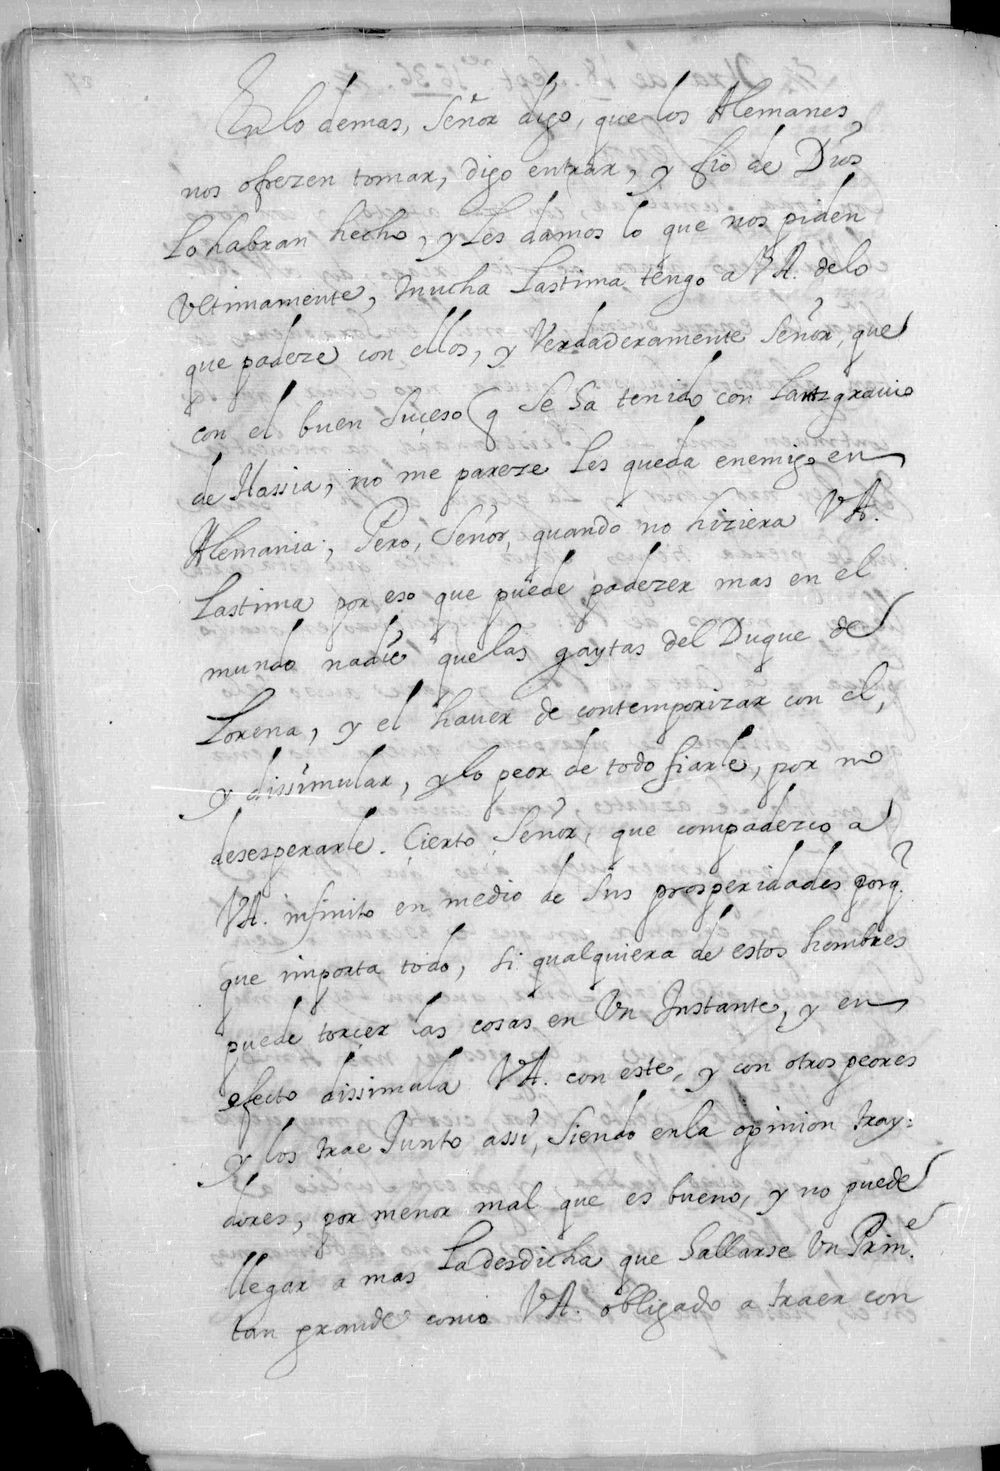 En lo demas, Señor digo, que los Alemanes,
nos ofrezen tomar, digo entrar, y fio de Dios
lo habran hecho, y les damos lo que nos piden
Vltimamente, mucha Lastima tengo a VA. de lo
que padeze con ellos, y Verdaderamente Señor, que
con el buen suçeso q se ha tenido con Lantzgrauio
de Hassia, no me pareze les queda enemigo en
Alemania; Pero, Señor, quando no hiziera VA.
Lastima por eso que puede padezer mas en el
mundo nadie que las gaytas del Duque de
Lorena, y el hauer de contemporizar con el,
y dissimular, y lo peor de todo fiarle, por no
desesperarle. Cierto Señor, que compadezco a
VA. infinito en medio de sus prosperidades porq.
que importa todo, si qualquiera de estos hombres
puede torçer las cosas en Vn Instante, y en
efecto dissimula VA. con este, y con otros peores
y los trae Junto assi, siendo en la opinion tray:
dores, por menor mal que es bueno, y no puede
llegar a mas La desdicha que hallarse Vn Prin.e
tan grande como VA. obligado a traer con